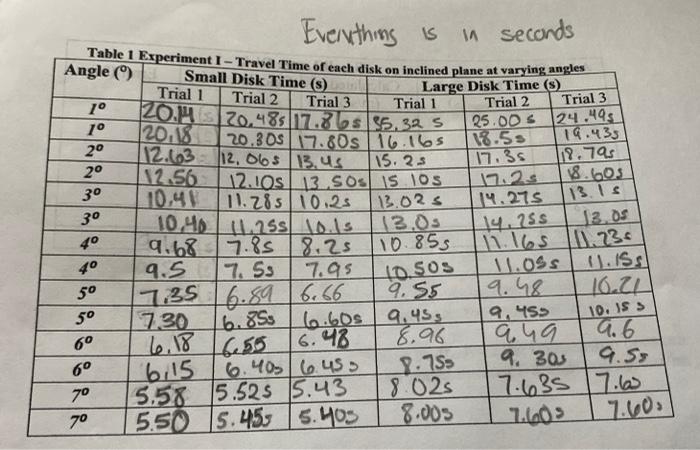 Everything is in seconds
Table 1 Experiment I – Travel Time of each disk on inclined plane at varying angles
Angle (º) Small Disk Time (s) Large Disk Time (s)
Trial 1 Trial 2 Trial 3 Trial 1 Trial 2 Trial 3
1º 20.14 s 20.48s 17.86s 35.32 s 25.00 s 24.49s
1º 20.18 20.30s 17.80s 16.16s 18.5s 19.43s
2º 12.63 12.06s 13.4s 15.2s 17.3s 18.79s
2º 12.56 12.10s 13.50s 15.10s 17.2s 18.60s
3º 10.41 11.28s 10.2s 13.02s 14.27s 13.1s
3º 10.40 11.25s 10.1s 13.0s 14.25s 13.0s
4º 9.68 7.8s 8.2s 10.85s 11.16s 11.23s
4º 9.5 7.5s 7.9s 10.50s 11.05s 11.15s
5º 7.35 6.89 6.66 9.55 9.48 10.21
5º 7.30 6.85s 6.60s 9.45s 9.45s 10.15s
6º 6.18 6.55 6.48 8.96 9.49 9.6
6º 6.15 6.40s 6.45s 8.75s 9.30s 9.5s
7º 5.58 5.52s 5.43 8.02s 7.63s 7.6s
7º 5.50 5.45s 5.40s 8.00s 7.60s 7.60s